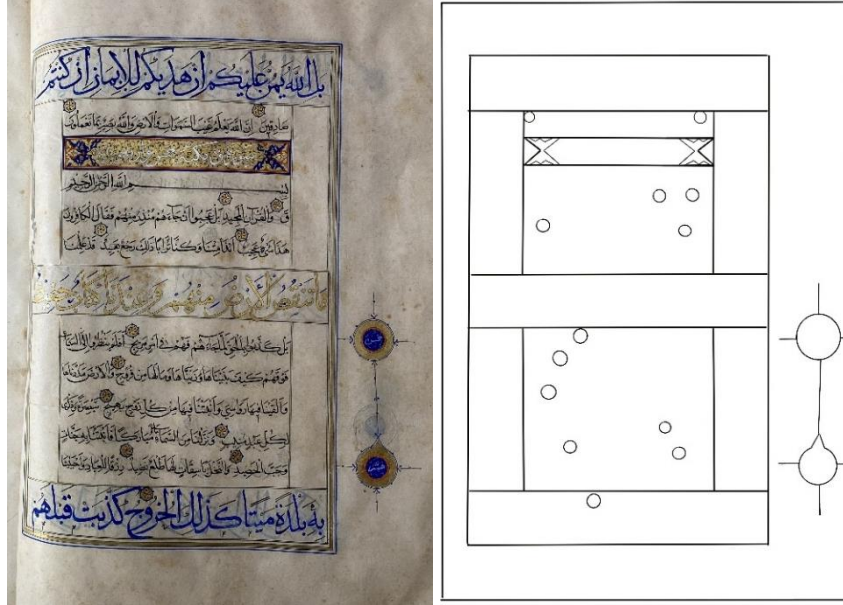 بل الله يمن عليكم ان هديكم للايمان ان كنتم
صادقين ان الله يعلم غيب السموات والارض والله بصير بما تعملون
بسم الله الرحمن الرحيم
ق والقران المجيد بل عجبوا ان جاءهم منذر منهم فقال الكافرون
هذا شيء عجيب ائذا متنا وكنا ترابا ذلك رجع بعيد قد علمنا
ما تنقص الارض منهم وعندنا كتاب حفيظ
بل كذبوا بالحق لما جاءهم فهم في امر مريج افلم ينظروا الى السماء
فوقهم كيف بنيناها وزيناها وما لها من فروج والارض مددناها
والقينا فيها رواسي وانبتنا فيها من كل زوج بهيج تبصرة وذكرى
لكل عبد منيب ونزلنا من السماء ماء مباركا فانبتنا به جنات
وحب الحصيد والنخل باسقات لها طلع نضيد رزقا للعباد واحيينا
به بلدة ميتا كذلك الخروج كذبت قبلهم